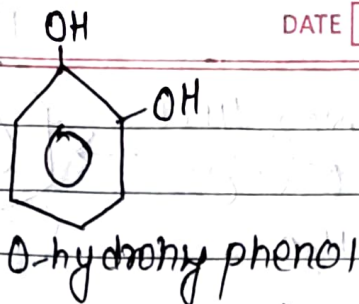 OH
DATE
OH
O-hydroxy phenol